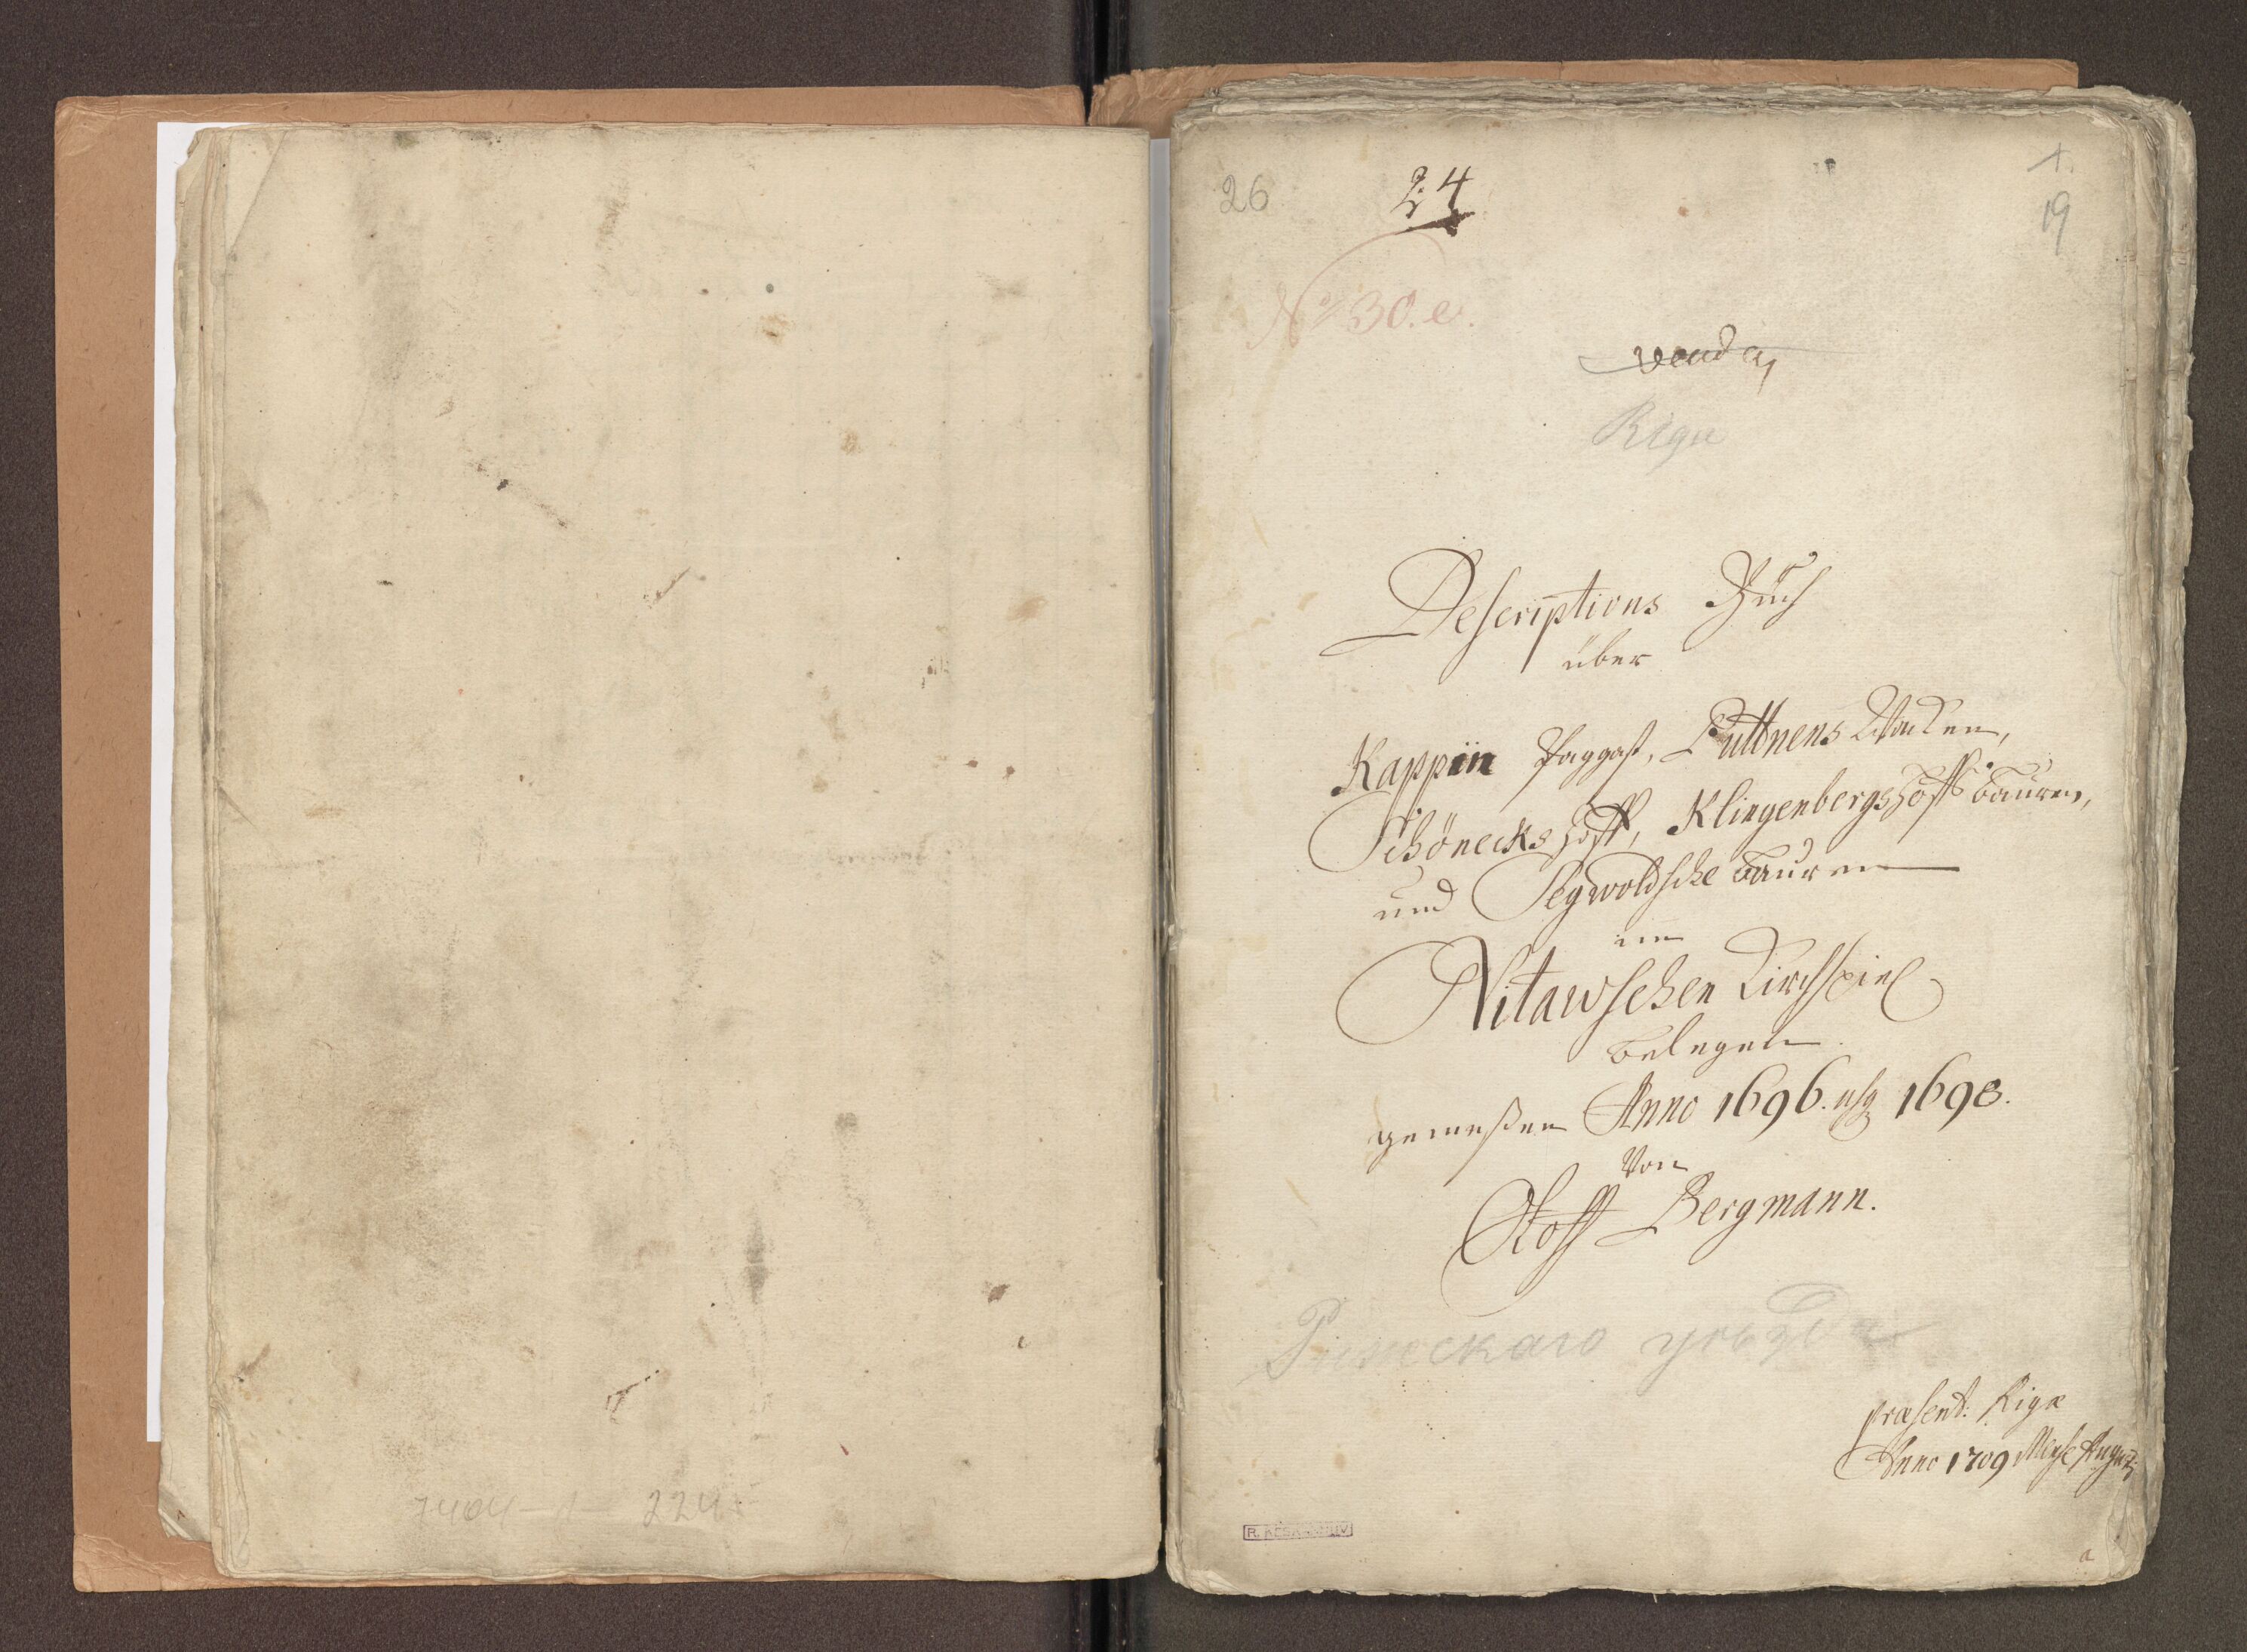 26
24
19
No 30. e.
Riga
Descriptions Buch
über
Kappin Paggast, Puttnens Wacken,
Schönecks hoff, Klingenbergshoffs bauren,
und Segwoldsche bauren
im
Nitawschen Kirchspiel
belegen.
gemeßen Anno 1696. usq 1698.
Von
Oloff Bergmann.
Рижскаго уѣзда
præsent: Rigæ
Anno 1709 Mense August:
R. KESKARHIIV
a